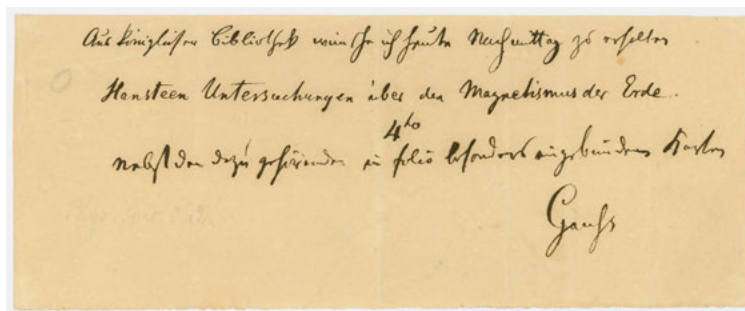 Aus Königlicher Bibliothek wünsche ich heute Nachmittag zu erhalten
Hansteen Untersuchungen über den Magnetismus der Erde.
4to
nebst den dazu gehörenden in folio besonders eingebundenen Karten
Gauß